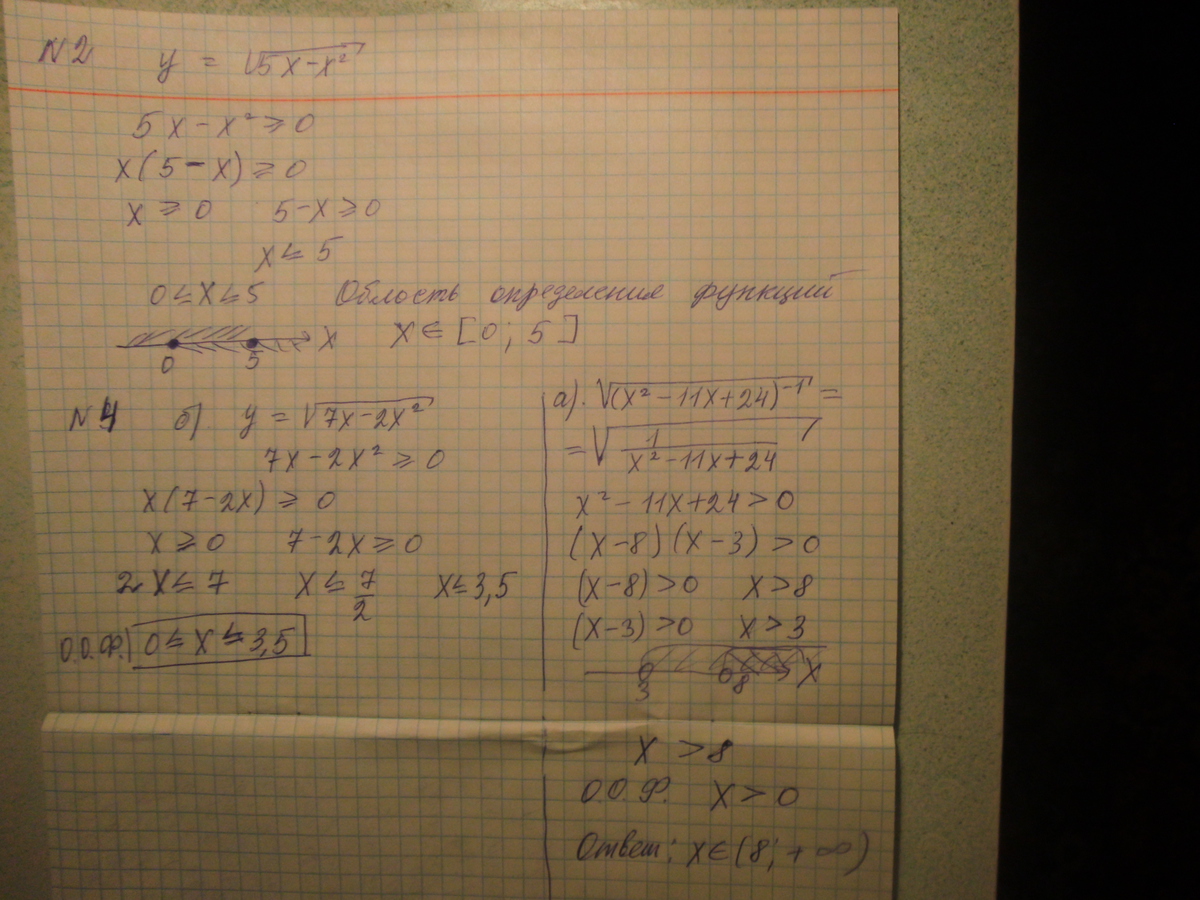 N2 y = √(5x-x²)
5x-x² ≥ 0
x(5-x) ≥ 0
x ≥ 0 5-x ≥ 0
x ≤ 5
0 ≤ x ≤ 5 Область определения функций
0 5 x x ∈ [0; 5]
N4 б) y = √(7x-2x²)
7x-2x² ≥ 0
x(7-2x) ≥ 0
x ≥ 0 7-2x ≥ 0
2x ≤ 7 x ≤ 7/2 x ≤ 3,5
О.О.Ф.) 0 ≤ x ≤ 3,5
а). √(x²-11x+24)⁻¹ =
= √(1/(x²-11x+24))
x²-11x+24 > 0
(x-8)(x-3) > 0
(x-8) > 0 x > 8
(x-3) > 0 x > 3
3 8 x
x > 8
О.О.Ф. x > 0
Ответ: x ∈ (8; +∞)